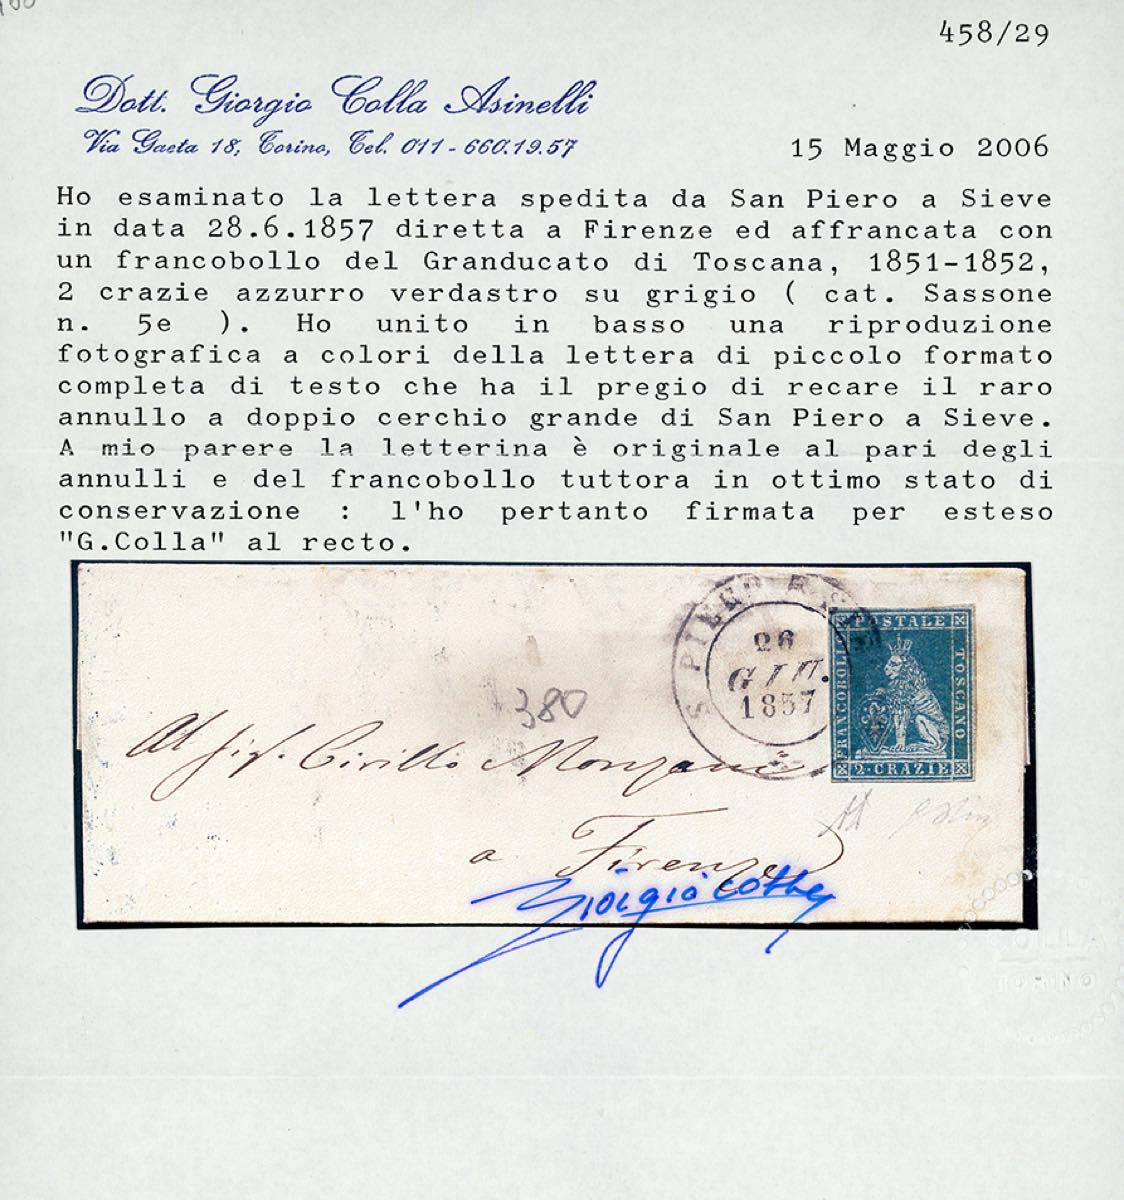 458/29
Dott. Giorgio Colla Asinelli
Via Gaeta 18, Torino, Tel. 011 - 660.19.57
15 Maggio 2006
Ho esaminato la lettera spedita da San Piero a Sieve
in data 28.6.1857 diretta a Firenze ed affrancata con
un francobollo del Granducato di Toscana, 1851-1852,
2 crazie azzurro verdastro su grigio ( cat. Sassone
n. 5e ). Ho unito in basso una riproduzione
fotografica a colori della lettera di piccolo formato
completa di testo che ha il pregio di recare il raro
annullo a doppio cerchio grande di San Piero a Sieve.
A mio parere la letterina è originale al pari degli
annulli e del francobollo tuttora in ottimo stato di
conservazione : l'ho pertanto firmata per esteso
"G.Colla" al recto.
S. PIERO
28
GIU.
1857
FRANCOBOLLO
POSTALE
TOSCANO
2 · CRAZIE
380
Al Sig. Cirillo Monzani
a Firenze
Giorgio Colla
TORINO